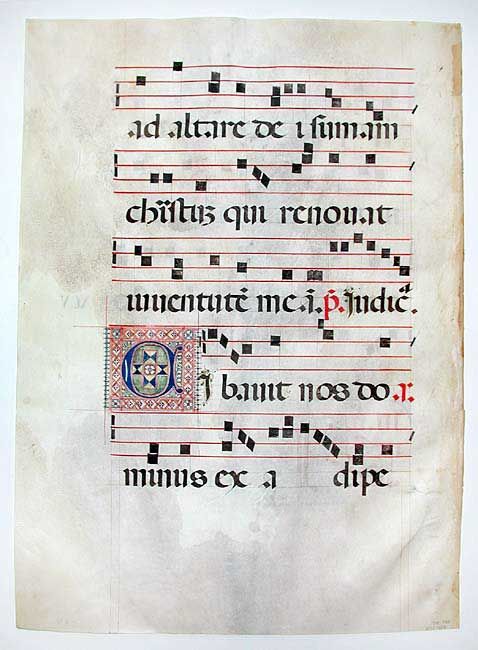 ad altare dei sumam
chr̄istuʒ qui renouat
iuuentutē me ā. p̄. Judic̄.
Cibauit nos do a.
minus ex adipe